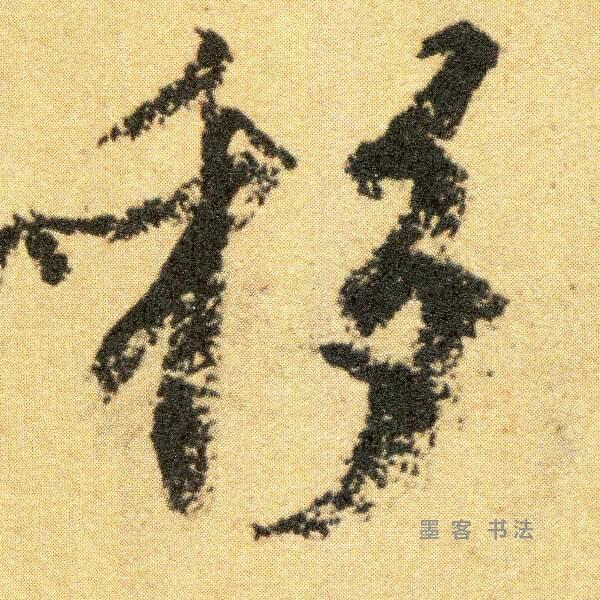 移
墨客书法